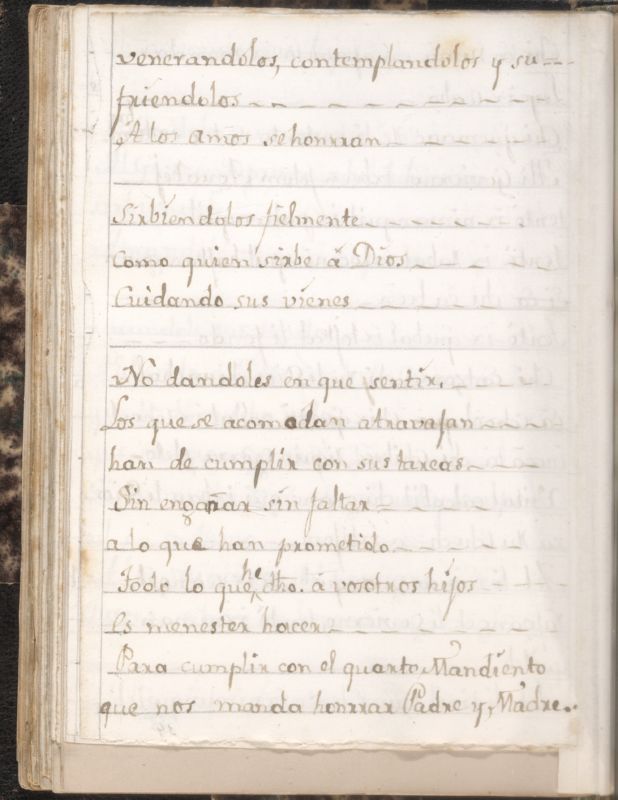 venerandolos, contemplandolos y su
friendolos
A los amos se honrran
Sirbiendolos fielmente
Como quien sirbe à Dios
Cuidando sus vienes
No dandoles en que sentir.
Los que se acomodan atravajan
han de cumplir con sus tareas
Sin engañar sin faltar
a lo que han prometido
Todo lo que he dho. à vosotros hijos
Es menester hacer
Para cumplir con el quarto Mandiento
que nos manda honrrar Padre y, Madre.